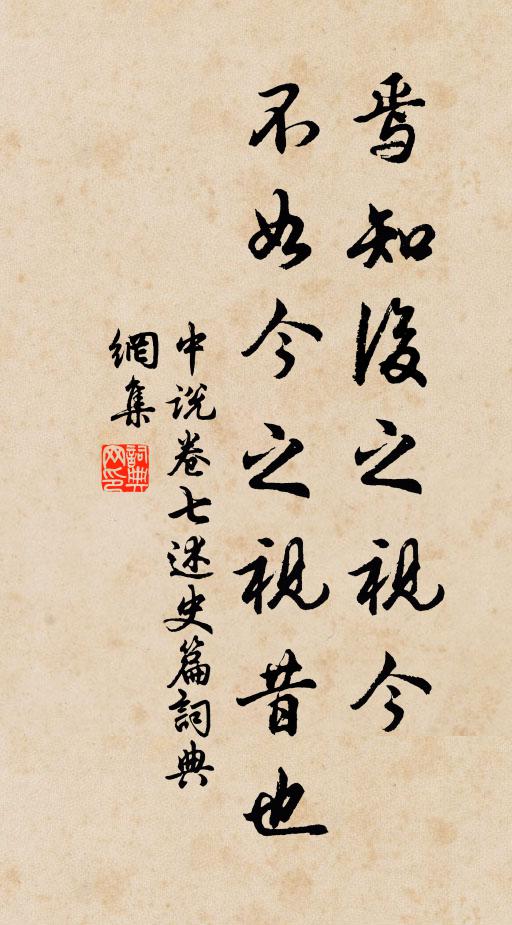 焉知後之視今
不如今之視昔也
中說卷七述史篇詞典
網集
詞典
网印